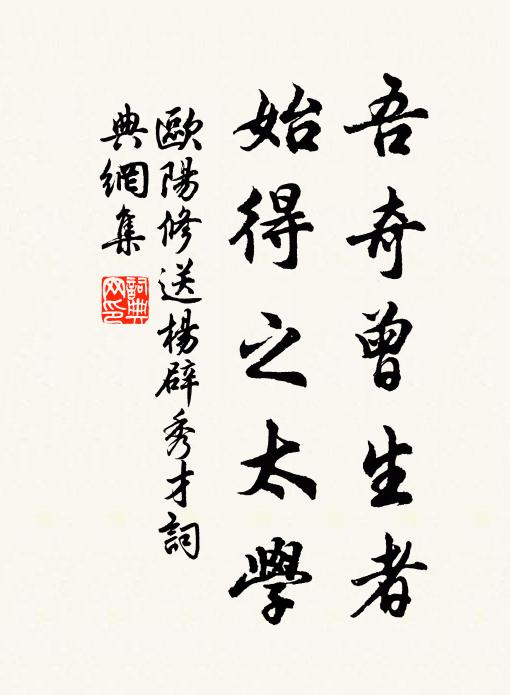 吾奇曾生者
始得之太學
歐陽修送楊辟秀才詞
典網集
詞典網印